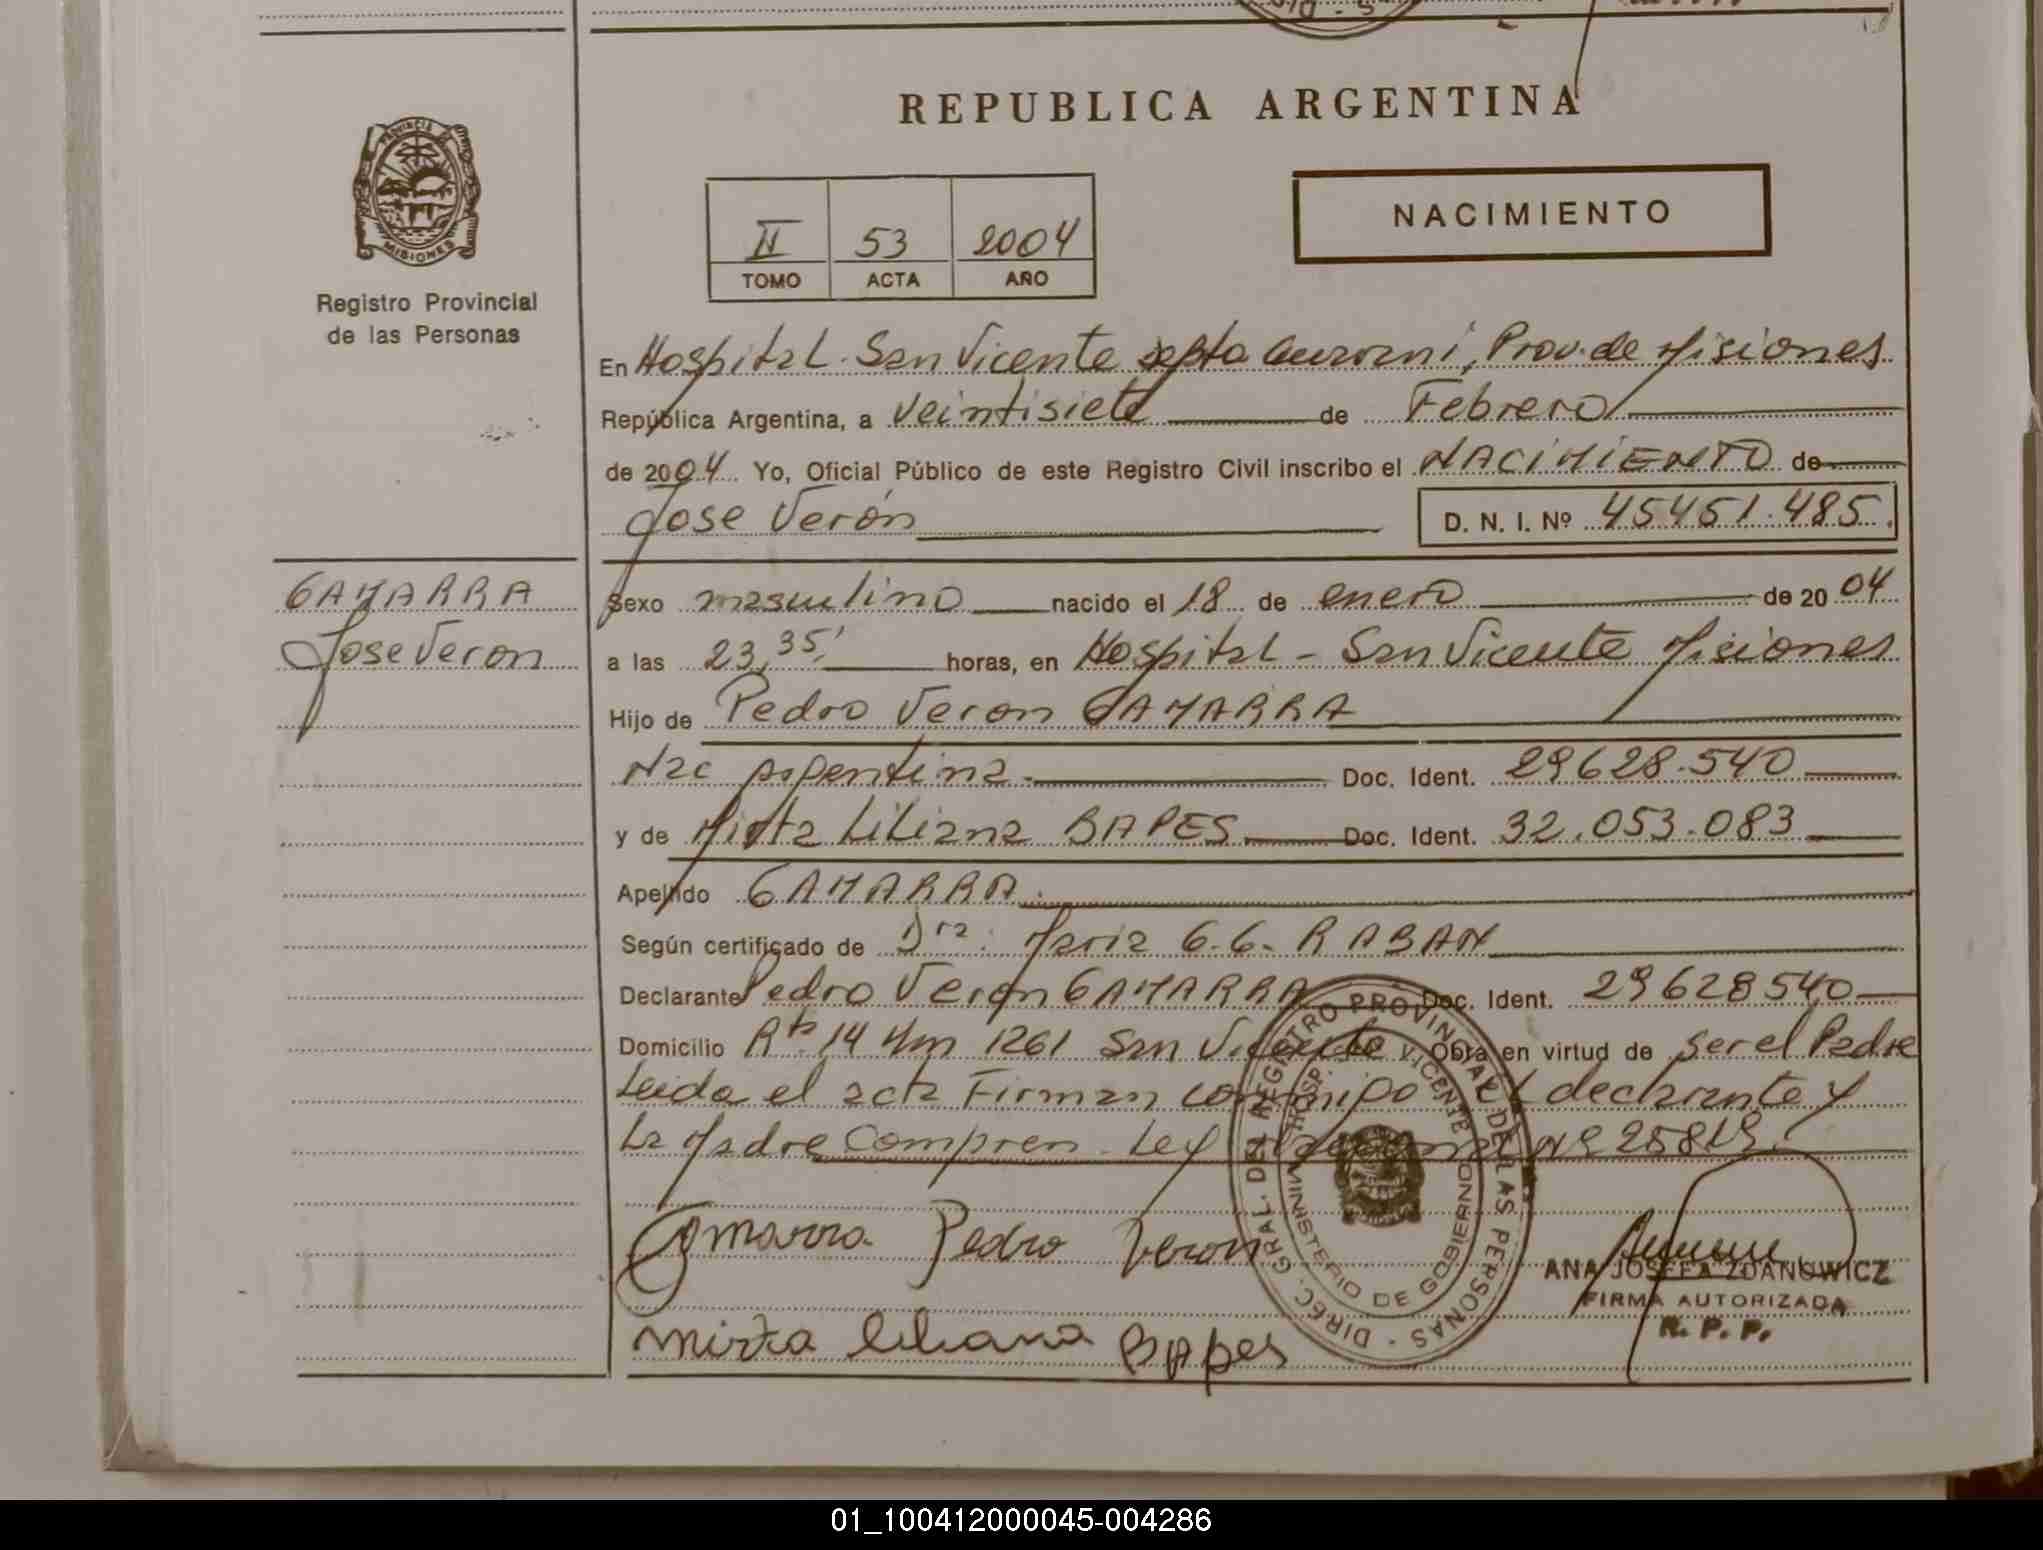 REPUBLICA ARGENTINA
PROVINCIA DE MISIONES
Registro Provincial
de las Personas
II 53 2004
TOMO ACTA AÑO
NACIMIENTO
En Hospital San Vicente Depto Guarani, Prov. de Misiones
República Argentina, a veintisiete de Febrero
de 2004 Yo, Oficial Público de este Registro Civil inscribo el NACIMIENTO de
Jose Verón D. N. I. Nº 45451.485.
GAMARRA
Jose Veron
Sexo masculino nacido el 18 de enero de 2004
a las 23,35' horas, en Hospital - San Vicente Misiones
Hijo de Pedro Veron GAMARRA
Nac argentina. Doc. Ident. 29628.540
y de Mirta Liliana BAPES Doc. Ident. 32.053.083
Apellido GAMARRA.
Según certificado de Dra. Maria G.G. RABAN
Declarante Pedro Veron GAMARRA Doc. Ident. 29628540
Domicilio Rta 14 Km 1261 San Vicente Obra en virtud de ser el Padre
Leida el acta Firman conmigo el declarante y
La Madre Compren. Ley Nº 25819.
Gamarra Pedro Veron
Mirta liliana Bapes
DIREC. GRAL. DEL REGISTRO PROVINCIAL DE LAS PERSONAS -
HOSP. S. VICENTE
MINISTERIO DE GOBIERNO
ANA JOSEFA ZDANOWICZ
FIRMA AUTORIZADA
R. P. P.
01_100412000045-004286